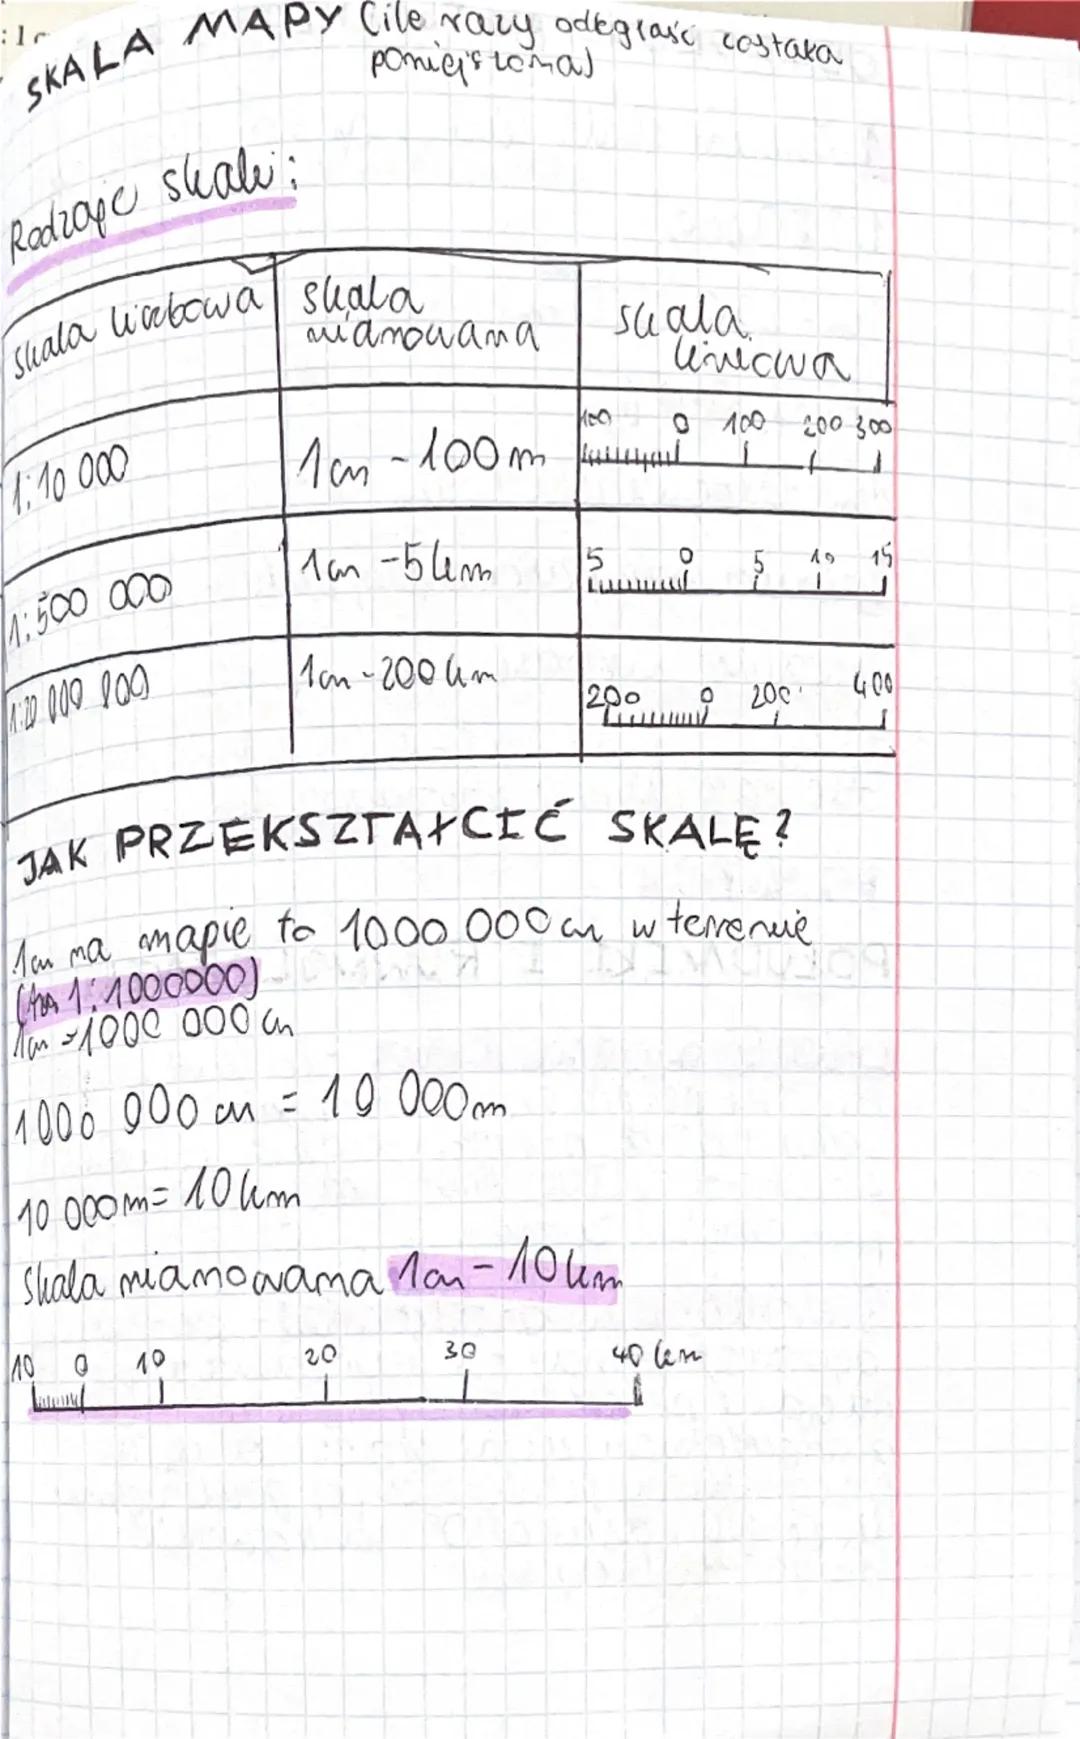 SKALA MAPY (ile razy odległość została
pomniejszona)
Rodzaje skali:
skala liczbowa
skala
mianowana
skala
liniowa
1:10 000
1cm - 100m
100 0 100 200 300
1:500 000
1cm - 5km
5 0 5 10 15
1:20 000 000
1cm - 200km
200 0 200 400
JAK PRZEKSZTAŁCIĆ SKALĘ?
1cm na mapie to 1000 000cm w terenie
1:1000000)
1cm = 1000 000 cm
1000 000 cm = 10 000m
10 000m = 10km
Skala mianowana 1cm - 10km
10 0 10 20 30 40 km